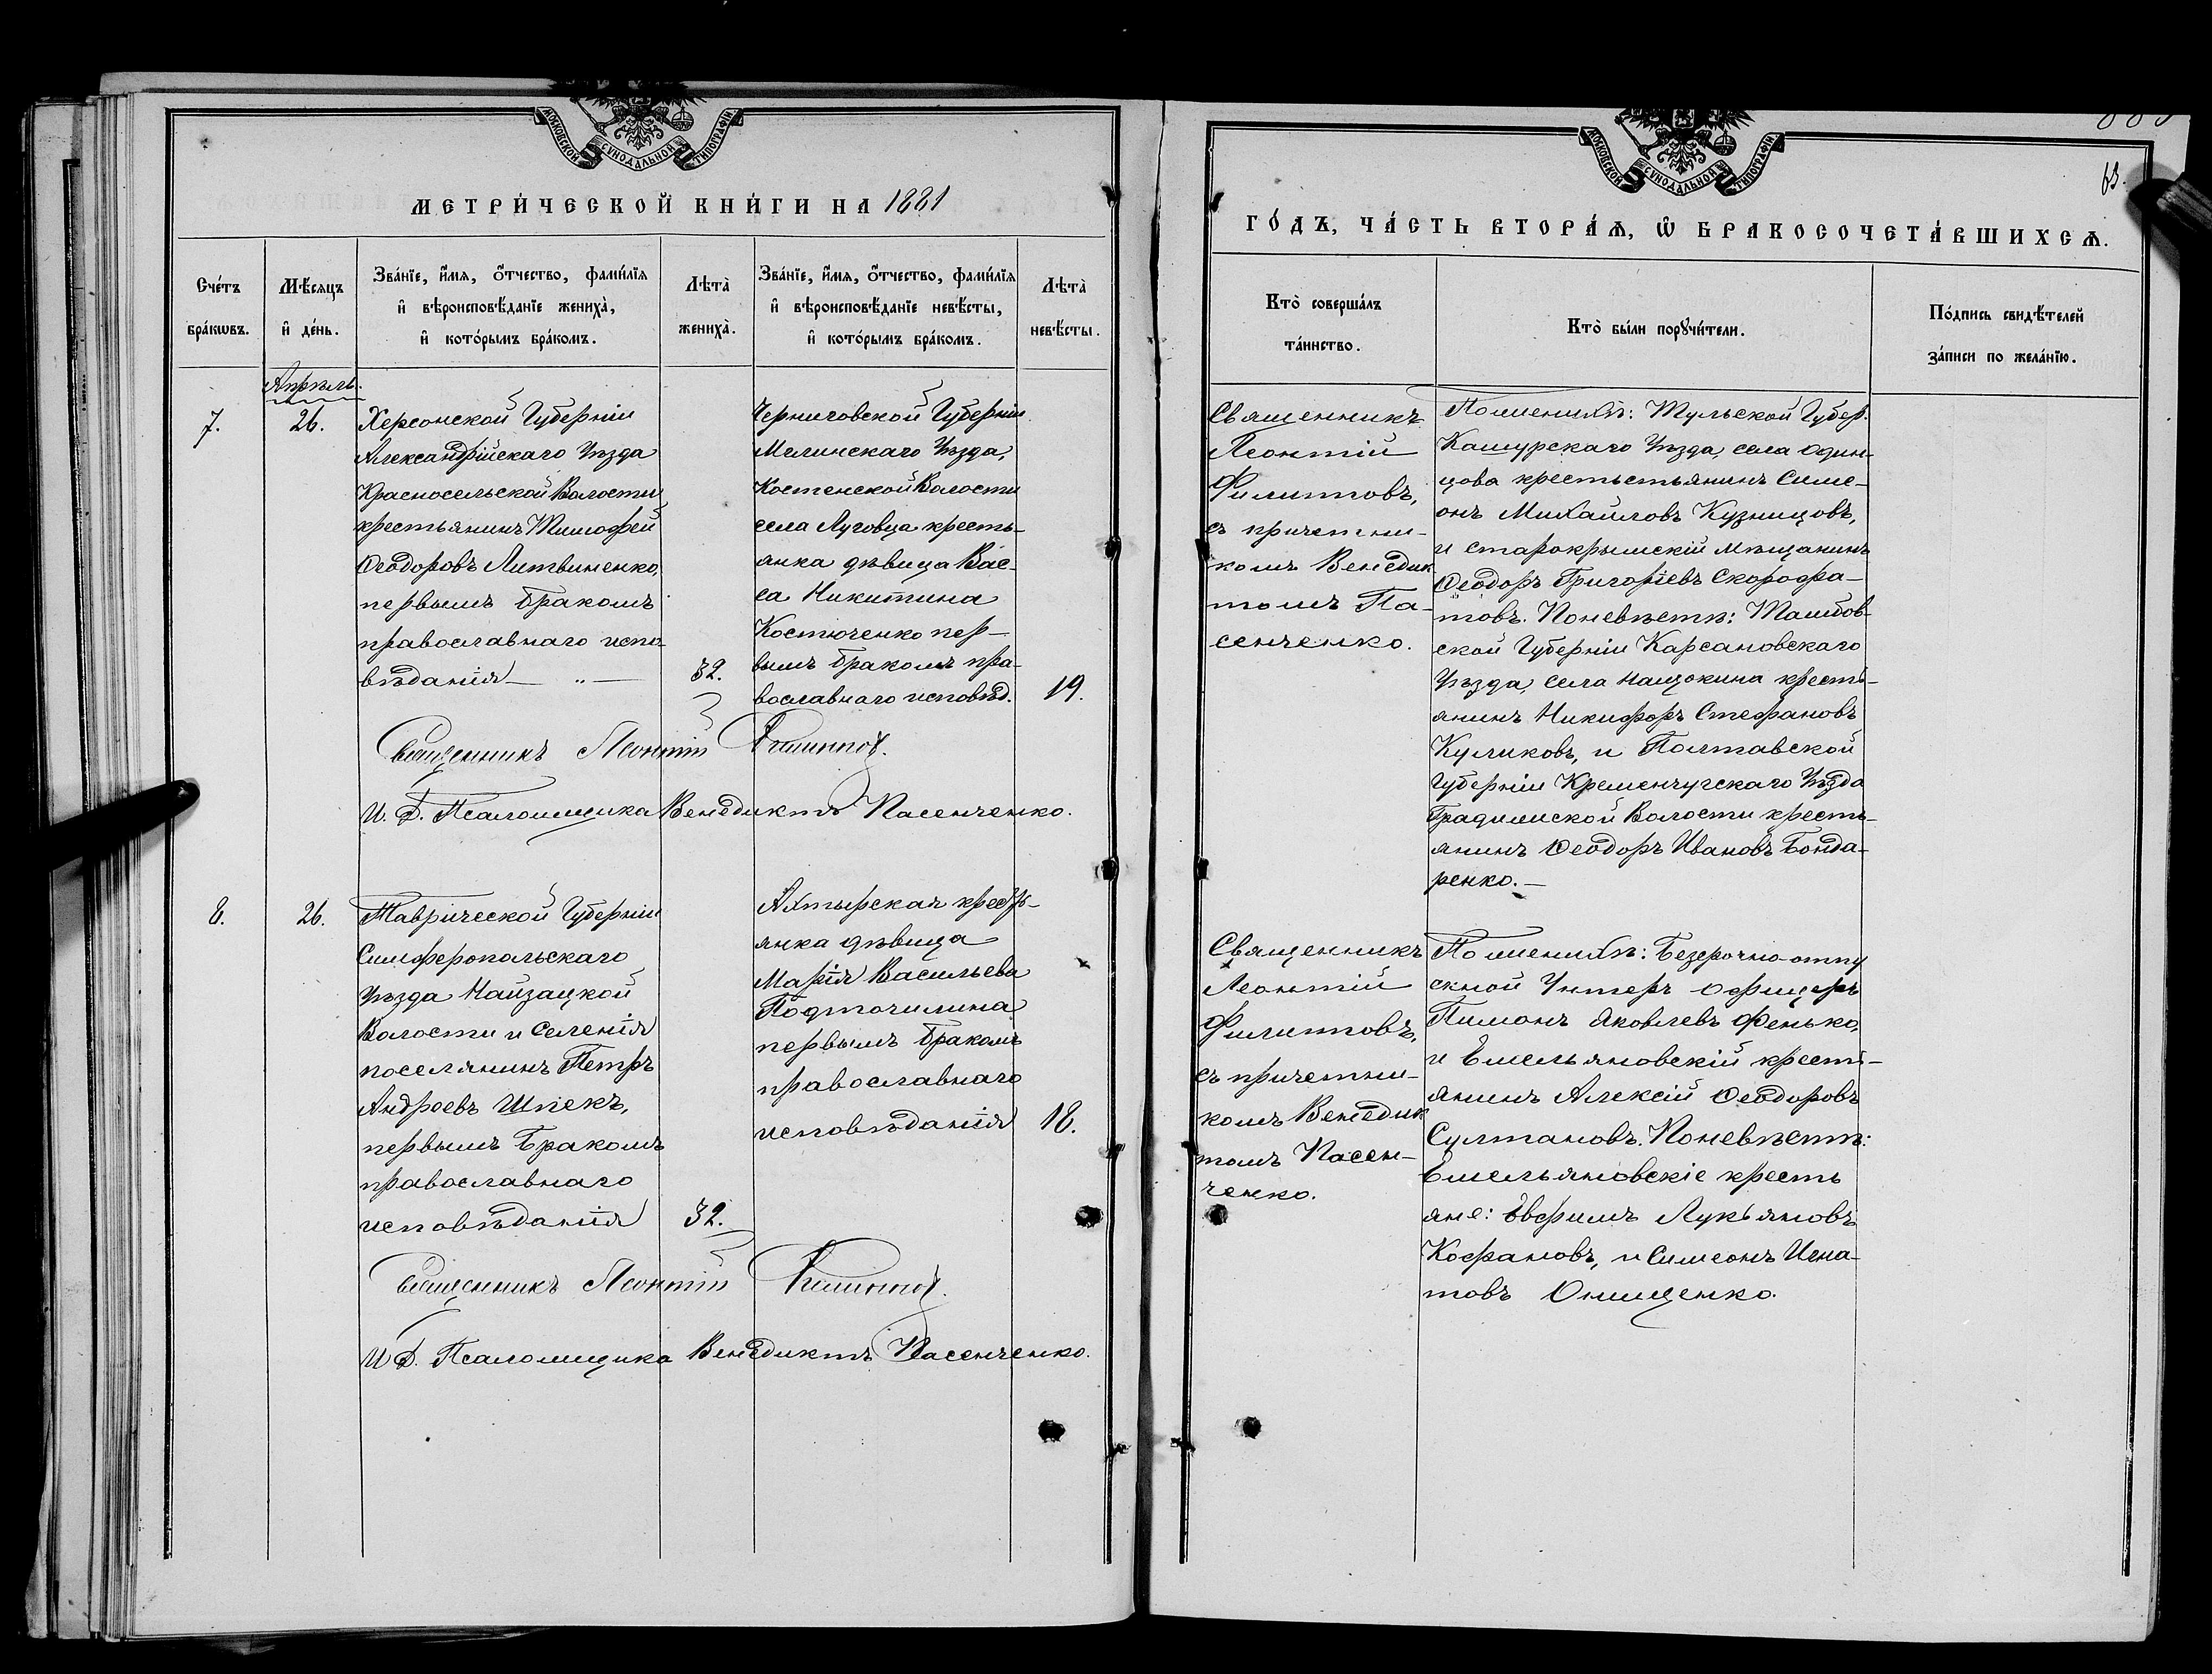 МОСКОВСКОЙ СѴНОДАЛЬНОЙ ТИПОГРАФІИ
МЕТРИ́ЧЕСКОЙ КНИ́ГИ НА 1881
Сче́тъ бра́кѡвъ.
Мѣ́сяцъ и҆ де́нь.
Зва́нїе, и҆́мя, ѻ҆́тчество, фами́лїя
и҆ вѣроисповѣ́данїе жениха̀,
и҆ кото́рымъ бра́комъ.
Лѣта̀ жениха̀.
Зва́нїе, и҆́мя, ѻ҆́тчество, фами́лїя
и҆ вѣроисповѣ́данїе невѣ́сты,
и҆ кото́рымъ бра́комъ.
Лѣта̀ невѣ́сты.
Апрѣль.
7.
26.
Херсонской Губерніи
Александрійскаго Уѣзда
Красносельской Волости
крестьянинъ Тимофей
Ѳеодоровъ Литвиненко,
первымъ бракомъ
православнаго испо-
вѣданія — „ —
32.
Черниговской Губерніи
Мглинскаго Уѣзда,
Костенской Волости
села Луговца кресть-
янка дѣвица Вас-
са Никитина
Костюченко пер-
вымъ бракомъ пра-
вославнаго исповѣд.
19.
Священникъ Леонтій Филиппов.
И. Д. Псаломщика Венедиктъ Пасенченко.
8.
26.
Таврической Губерніи
Симферопольскаго
Уѣзда Найзацкой
Волости и Селенія
поселянинъ Петръ
Андреевъ Шпекъ,
первымъ Бракомъ
православнаго
исповѣданія
32.
Ахтырская кресть-
янка дѣвица
Марія Васильева
Подточилина
первымъ бракомъ
православнаго
исповѣданія
18.
Священникъ Леонтій Филиппов.
И Д. Псаломщика Венедиктъ Пасенченко.
МОСКОВСКОЙ СѴНОДАЛЬНОЙ ТИПОГРАФІИ
63.
ГО́ДЪ, ЧА́СТЬ ВТОРА́Ѧ, Ѡ҆ БРАКОСОЧЕТА́ВШИХСѦ.
Кто̀ соверша́лъ
та́инство.
Кто̀ бы́ли порꙋчи́тели.
По́дпись свидѣ́телей
за́писи по жела́нїю.
Священникъ
Леонтій
Филипповъ,
съ причетни-
комъ Венедик
томъ Па-
сенченко.
По женихѣ: Тульской Губер.
Кашурскаго Уѣзда, села Один-
цова крестьстьянинъ Симе-
онъ Михайловъ Кузницовъ,
и старокрымскій мѣщанинъ
Ѳеодоръ Григоріевъ Скорофа-
товъ. Поневѣстѣ: Тамбов-
ской Губерніи Карсановскаго
Уѣзда, села Нащокина кресть-
янинъ Никифоръ Стефановъ
Куликовъ, и Полтавской
Губерніи Кременчугскаго Уѣзда
Градижской Волости кресть-
янинъ Ѳеодоръ Ивановъ Бонда-
ренко. —
Священникъ
Леонтій
Филипповъ,
съ причетни-
комъ Венедик
томъ Пасен-
ченко.
По женихѣ: Безсрочно-отпу
скной Унтеръ Офицеръ
Пимонъ Яковлевъ Фенько,
и Емельяновскій кресть-
янинъ Алексій Ѳеодоровъ
Султановъ. Поневѣстѣ:
Емельяновскіе кресть
яне: Евфимъ Лукьяновъ
Кофановъ, и Симеонъ Игна-
товъ Онищенко.